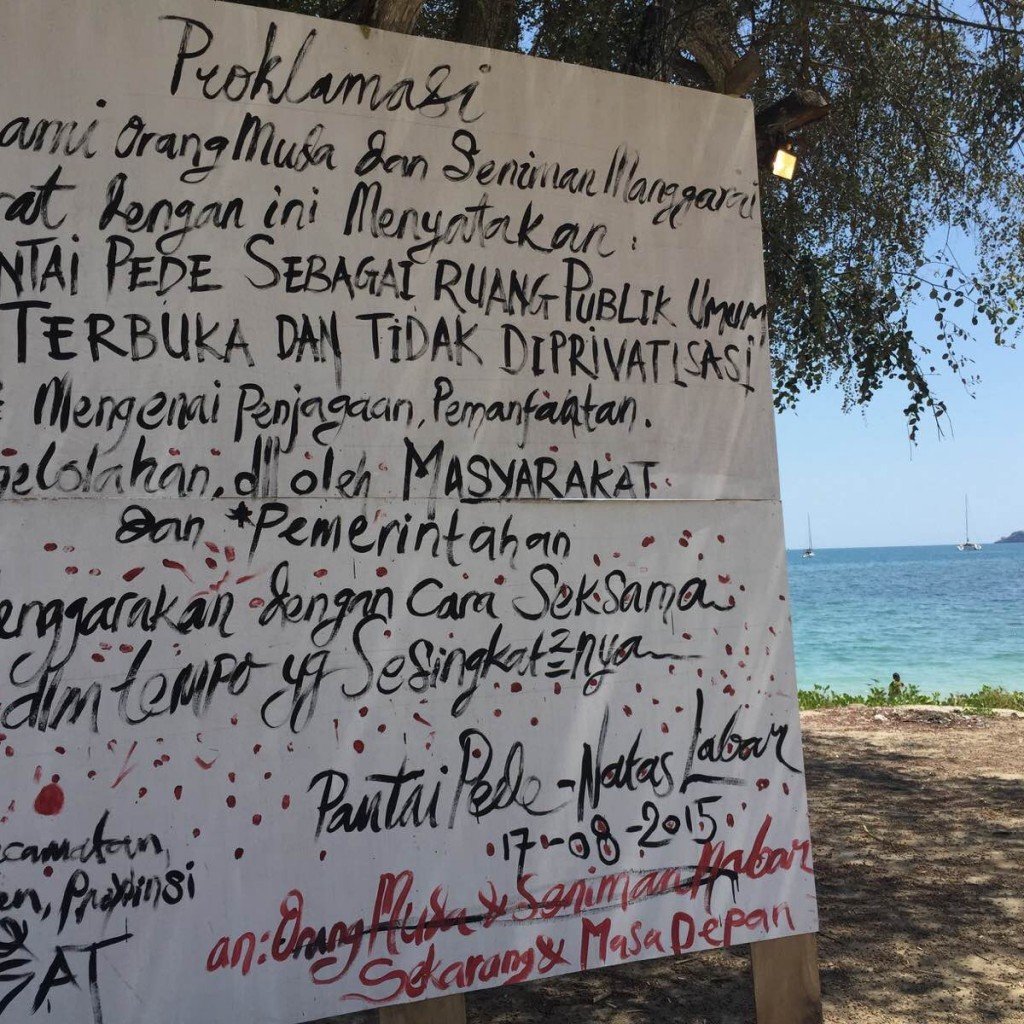 Proklamasi
ami Orang Muda dan Seniman Manggarai
rat dengan ini Menyatakan :
NTAI PEDE SEBAGAI RUANG PUBLIK UMUM
TERBUKA DAN TIDAK DIPRIVATISASI
Mengenai Penjagaan, Pemanfaatan.
gelolahan, dll oleh MASYARAKAT
dan *Pemerintahan
enggarakan dengan Cara Seksama
dlm tempo yg Sesingkat2nya
Pantai Pede - Natas Labar
17-08-2015
camatan,
en, Provinsi
an: Orang Muda & Seniman Mabar
Sekarang & Masa Depan